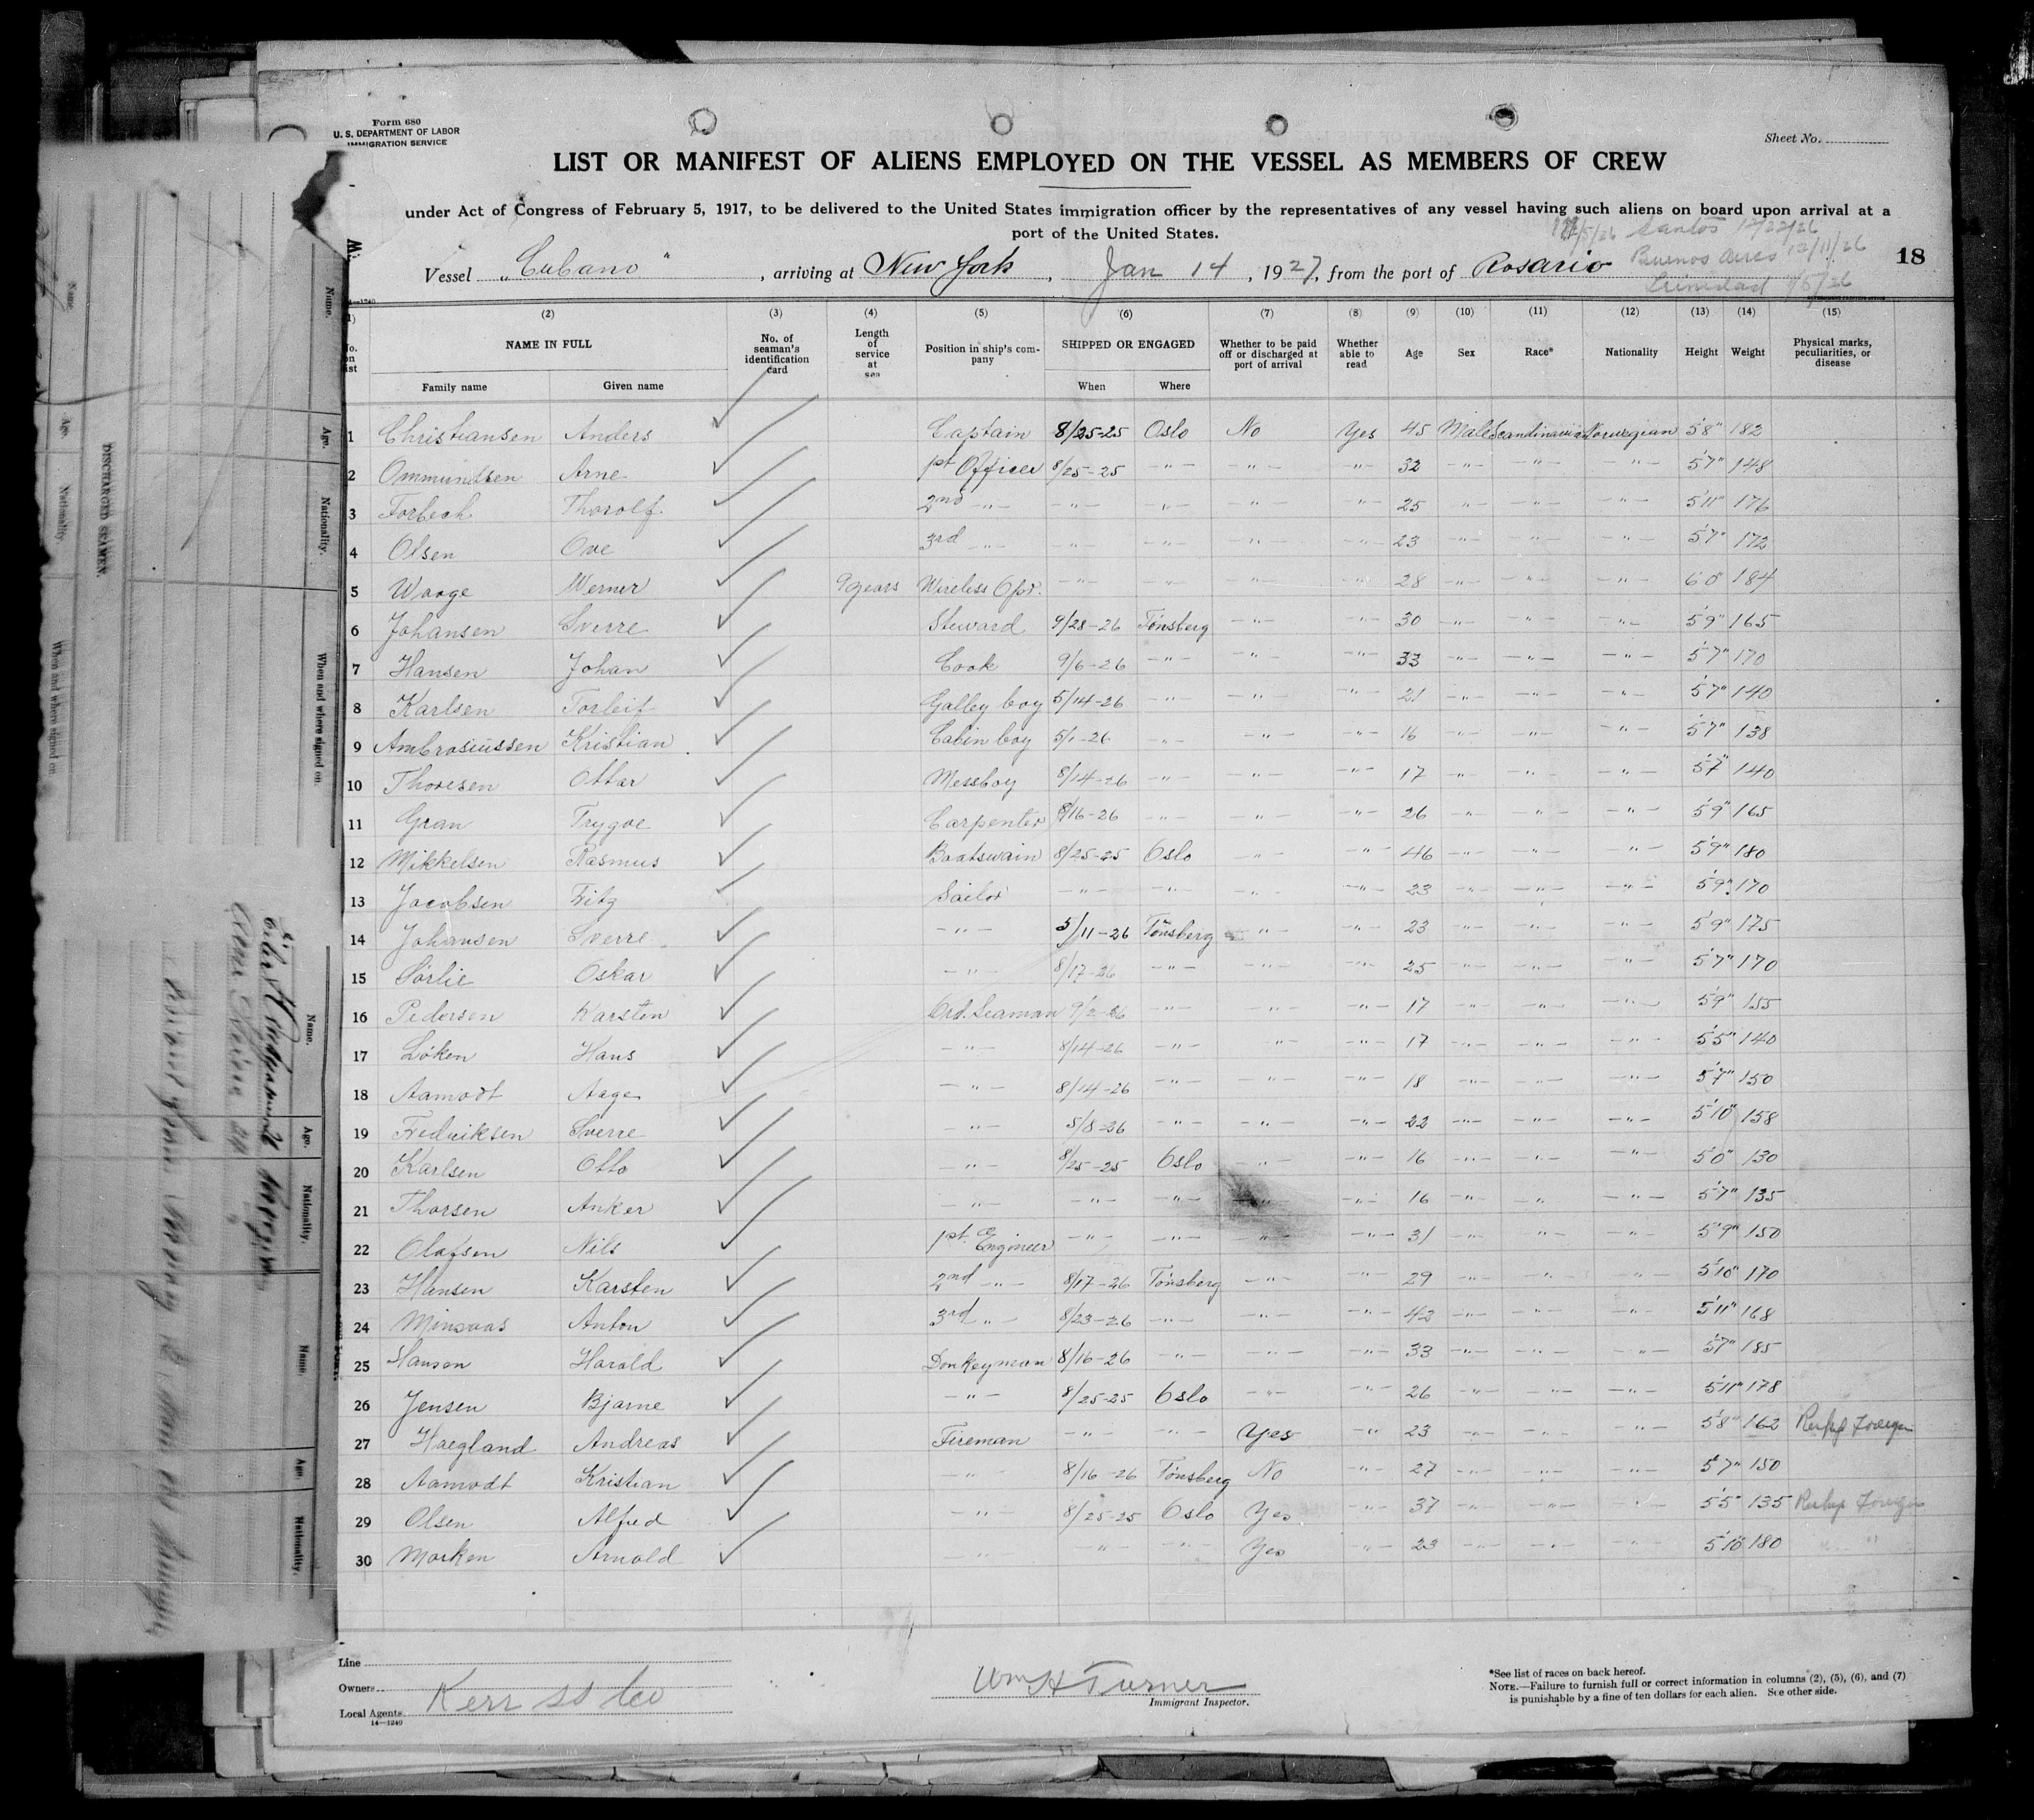 Form 680
U. S. DEPARTMENT OF LABOR
IMMIGRATION SERVICE
Sheet No.
LIST OR MANIFEST OF ALIENS EMPLOYED ON THE VESSEL AS MEMBERS OF CREW
under Act of Congress of February 5, 1917, to be delivered to the United States immigration officer by the representatives of any vessel having such aliens on board upon arrival at a
port of the United States.
Santos 12/22/26
Buenos Aires 12/11/26
Trinidad
Vessel "Cubano", arriving at New York, Jan 14, 1927, from the port of Rosario
18
(2) (3) (4) (5) (6) (7) (8) (9) (10) (11) (12) (13) (14) (15)
NAME IN FULL No. of seaman's identification card Length of service at sea Position in ship's company SHIPPED OR ENGAGED Whether to be paid off or discharged at port of arrival Whether able to read Age Sex Race* Nationality Height Weight Physical marks, peculiarities, or disease
Family name Given name When Where
1 Christiansen Anders Captain 8/25-25 Oslo No Yes 45 Male Scandinavian Norwegian 5'8" 182
2 Ommundsen Arne 1st Officer 8/25-25 -"- -"- -"- 32 -"- -"- -"- 5'7" 148
3 Forbech Thorolf 2nd -"- -"- -"- -"- -"- 25 -"- -"- -"- 5'11" 176
4 Olsen Ove 3rd -"- -"- -"- -"- -"- 23 -"- -"- -"- 5'7" 172
5 Waage Werner 9 years Wireless Opr. -"- -"- -"- -"- 28 -"- -"- -"- 6'0" 184
6 Johansen Sverre Steward 9/28-26 Tønsberg -"- -"- 30 -"- -"- -"- 5'9" 165
7 Hansen Johan Cook 9/6-26 -"- -"- -"- 33 -"- -"- -"- 5'7" 170
8 Karlsen Torleif Galley boy 5/14-26 -"- -"- -"- 21 -"- -"- -"- 5'7" 140
9 Ambrosiussen Kristian Cabin boy 5/1-26 -"- -"- -"- 16 -"- -"- -"- 5'7" 138
10 Thoresen Ottar Messboy 8/14-26 -"- -"- -"- 17 -"- -"- -"- 5'7" 140
11 Gran Trygve Carpenter 8/16-26 -"- -"- -"- 26 -"- -"- -"- 5'9" 165
12 Mikkelsen Rasmus Boatswain 8/25-25 Oslo -"- -"- 46 -"- -"- -"- 5'9" 180
13 Jacobsen Fritz Sailor -"- -"- -"- -"- 23 -"- -"- -"- 5'9" 170
14 Johansen Sverre -"- 5/11-26 Tønsberg -"- -"- 23 -"- -"- -"- 5'9" 175
15 Sørlie Oskar -"- 8/17-26 -"- -"- -"- 25 -"- -"- -"- 5'7" 170
16 Pedersen Karsten Ord. Seaman 9/2-26 -"- -"- -"- 17 -"- -"- -"- 5'9" 155
17 Løken Hans -"- 8/14-26 -"- -"- -"- 17 -"- -"- -"- 5'5" 140
18 Aamodt Aage -"- 8/14-26 -"- -"- -"- 18 -"- -"- -"- 5'7" 150
19 Fredriksen Sverre -"- 5/8-26 -"- -"- -"- 22 -"- -"- -"- 5'10" 158
20 Karlsen Otto -"- 8/25-25 Oslo -"- -"- 16 -"- -"- -"- 5'0" 130
21 Thorsen Anker -"- -"- -"- -"- -"- 16 -"- -"- -"- 5'7" 135
22 Olafsen Nils 1st Engineer -"- -"- -"- -"- 31 -"- -"- -"- 5'9" 150
23 Hansen Karsten 2nd -"- 8/17-26 Tønsberg -"- -"- 29 -"- -"- -"- 5'10" 170
24 Minsaas Anton 3rd -"- 8/23-26 -"- -"- -"- 43 -"- -"- -"- 5'11" 168
25 Hansen Harald Donkeyman 8/16-26 -"- -"- -"- 33 -"- -"- -"- 5'7" 185
26 Jensen Bjarne -"- 8/25-25 Oslo -"- -"- 26 -"- -"- -"- 5'11" 178
27 Haegland Andreas Fireman -"- -"- Yes -"- 23 -"- -"- -"- 5'8" 162 Reshp Foreign
28 Aamodt Kristian -"- 8/16-26 Tønsberg No -"- 27 -"- -"- -"- 5'7" 150
29 Olsen Alfred -"- 8/25-25 Oslo Yes -"- 37 -"- -"- -"- 5'5" 135 Reshp Foreign
30 Morken Arnold -"- -"- -"- Yes -"- 23 -"- -"- -"- 5'10" 180 "
Line
Owners
Local Agents Kerr SS Co
14—1240
Wm H Turner
Immigrant Inspector.
*See list of races on back hereof.
NOTE.—Failure to furnish full or correct information in columns (2), (5), (6), and (7)
is punishable by a fine of ten dollars for each alien. See other side.
DISCHARGED SEAMEN.
Name. Age. Nationality. When and where signed on
Name. Age. Nationality.
Name Age. Nationality.